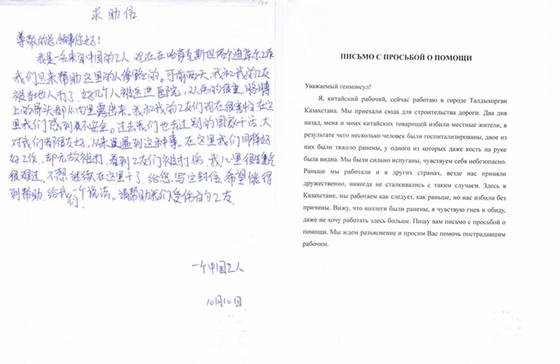 求助信
尊敬的总领事您好!
我是一名来自中国的工人,现在在哈萨克斯坦塔尔迪库尔工作
我们是来帮助这里的人修路的。可前两天,我和我的工友
被当地人打了,好几个人被送进医院,2人伤的很重,胳膊
上的骨头都从肉里露出来。我和我的工友们现在很害怕,在这
里我们感到很不安全。过去我们也去过别的国家干活,大
对我们都很友好,从来没遇到这种事。在这里我们同样好
好工作,却无故被打,看到工友们被打伤,我心里很生气
很难过,不想继续在这里干了。给您写这封信,希望能得
到帮助,给我们一个说法。请帮助我们受伤的工友
一个中国工人
10月10日
ПИСЬМО С ПРОСЬБОЙ О ПОМОЩИ
Уважаемый генконсул!
Я, китайский рабочий, сейчас работаю в городе Талдыкорган
Казахстана. Мы приехали сюда для строительства дороги. Два дня
назад, меня и моих китайских товарищей избили местные жители, в
результате чего несколько человек были госпитализированы, двое из
них были тяжело ранены, у одного из которых даже кость на руке
была видна. Мы были сильно испуганы, чувствуем себя небезопасно.
Раньше мы работали и в других странах, везде нас приняли
дружественно, никогда не сталкивались с таким случаем. Здесь в
Казахстане, мы работаем как следует, как раньше, но нас избили без
причины. Вижу, что коллеги были ранены, я чувствую гнев и обиду,
даже не хочу работать здесь больше. Пишу вам письмо с просьбой о
помощи. Мы ждем разъяснение и просим Вас помочь пострадавшим
рабочим.